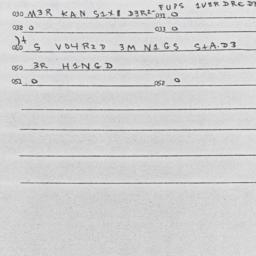 030 M3R KAN S1X8 D3R2- PUPS 1VERDREDT
031 0
032 0 033 0
040 S VO4R2D 3M N1GS S+A.D3
050 3R H1NGD
051 0 052 0